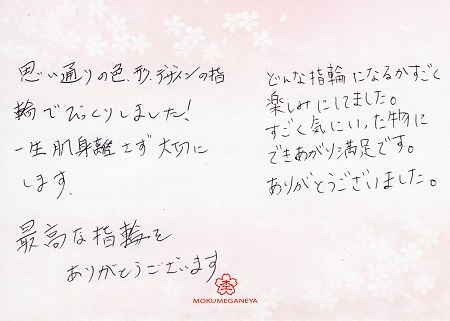 思い通りの色、形、デザインの指
輪でびっくりしました!
一生肌身離さず大切に
します。
最高な指輪を
ありがとうございます
どんな指輪になるかすごく
楽しみにしてました。
すごく気にいった物に
できあがり満足です。
ありがとうございました。
杢
MOKUMEGANEYA